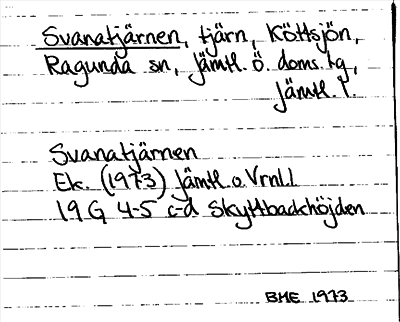 Svanatjärnen, tjärn, Köttsjön,
Ragunda sn, Jämtl. ö. doms. tg,
Jämtl. l.
Svanatjärnen
Ek. (1973) Jämtl. o Vrnl. l
19 G 4-5 c-d Skyttbackhöjden
BHE 1973